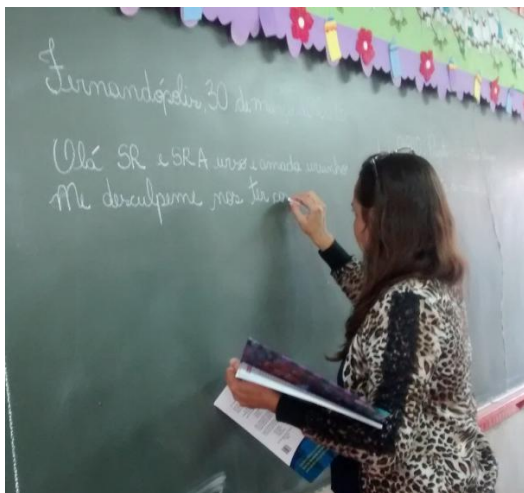 Fernandópolis, 30 de
Olá SR e SRA urso e amado ursinho
Me desculpeme, nos ter co